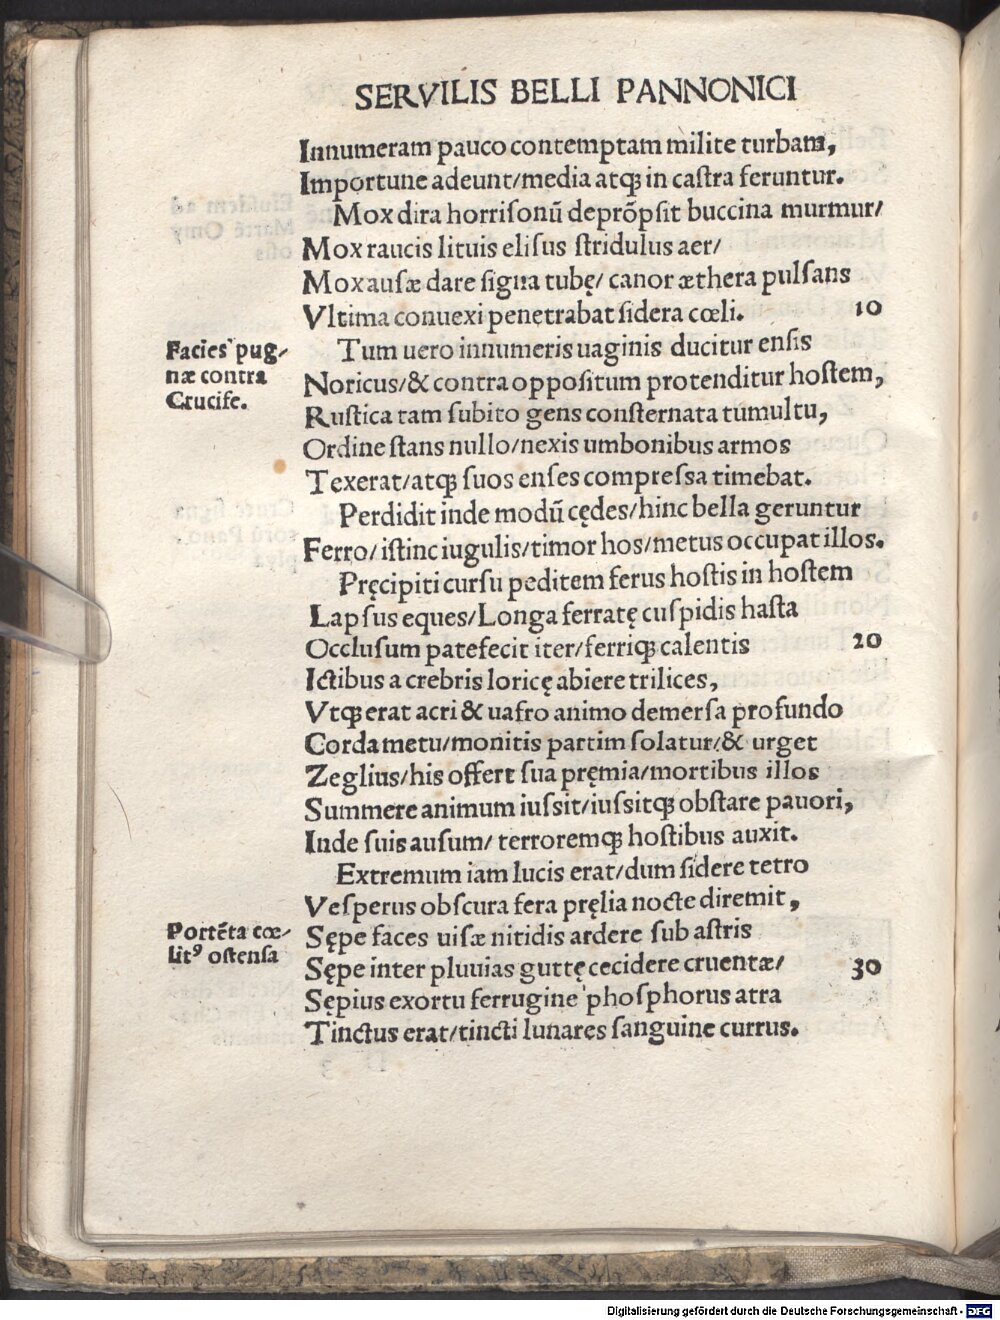 SERVILIS BELLI PANNONICI
Innumeram pauco contemptam milite turbam,
Importune adeunt/media atqꝫ in castra feruntur.
Mox dira horrisonū deprõpsit buccina murmur/
Mox raucis lituis elisus stridulus aer/
Mox ausæ dare signa tubę/ canor æthera pulsans
Vltima conuexi penetrabat sidera cœli. 10
Facies pug/
næ contra
Crucife.
Tum uero innumeris uaginis ducitur ensis
Noricus/& contra oppositum protenditur hostem,
Rustica tam subito gens consternata tumultu,
Ordine stans nullo/nexis umbonibus armos
Texerat/atqꝫ suos enses compressa timebat.
Perdidit inde modū cędes/hinc bella geruntur
Ferro/istinc iugulis/timor hos/metus occupat illos.
Pręcipiti cursu peditem ferus hostis in hostem
Lapsus eques/Longa ferratę cuspidis hasta
Occlusum patefecit iter/ferriqꝫ calentis 20
Ictibus a crebris loricę abiere trilices,
Vtqꝫ erat acri & uafro animo demersa profundo
Corda metu/monitis partim solatur/& urget
Zeglius/his offert sua pręmia/mortibus illos
Summere animum iussit/iussitqꝫ obstare pauori,
Inde suis ausum/ terroremqꝫ hostibus auxit.
Extremum iam lucis erat/dum sidere tetro
Vesperus obscura fera pręlia nocte diremit,
Portēta cœ/
litꝰ ostensa
Sępe faces uisæ nitidis ardere sub astris
Sępe inter pluuias guttę cecidere cruentæ/ 30
Sępius exortu ferrugine phosphorus atra
Tinctus erat/tincti lunares sanguine currus.
Digitalisierung gefördert durch die Deutsche Forschungsgemeinschaft - DFG